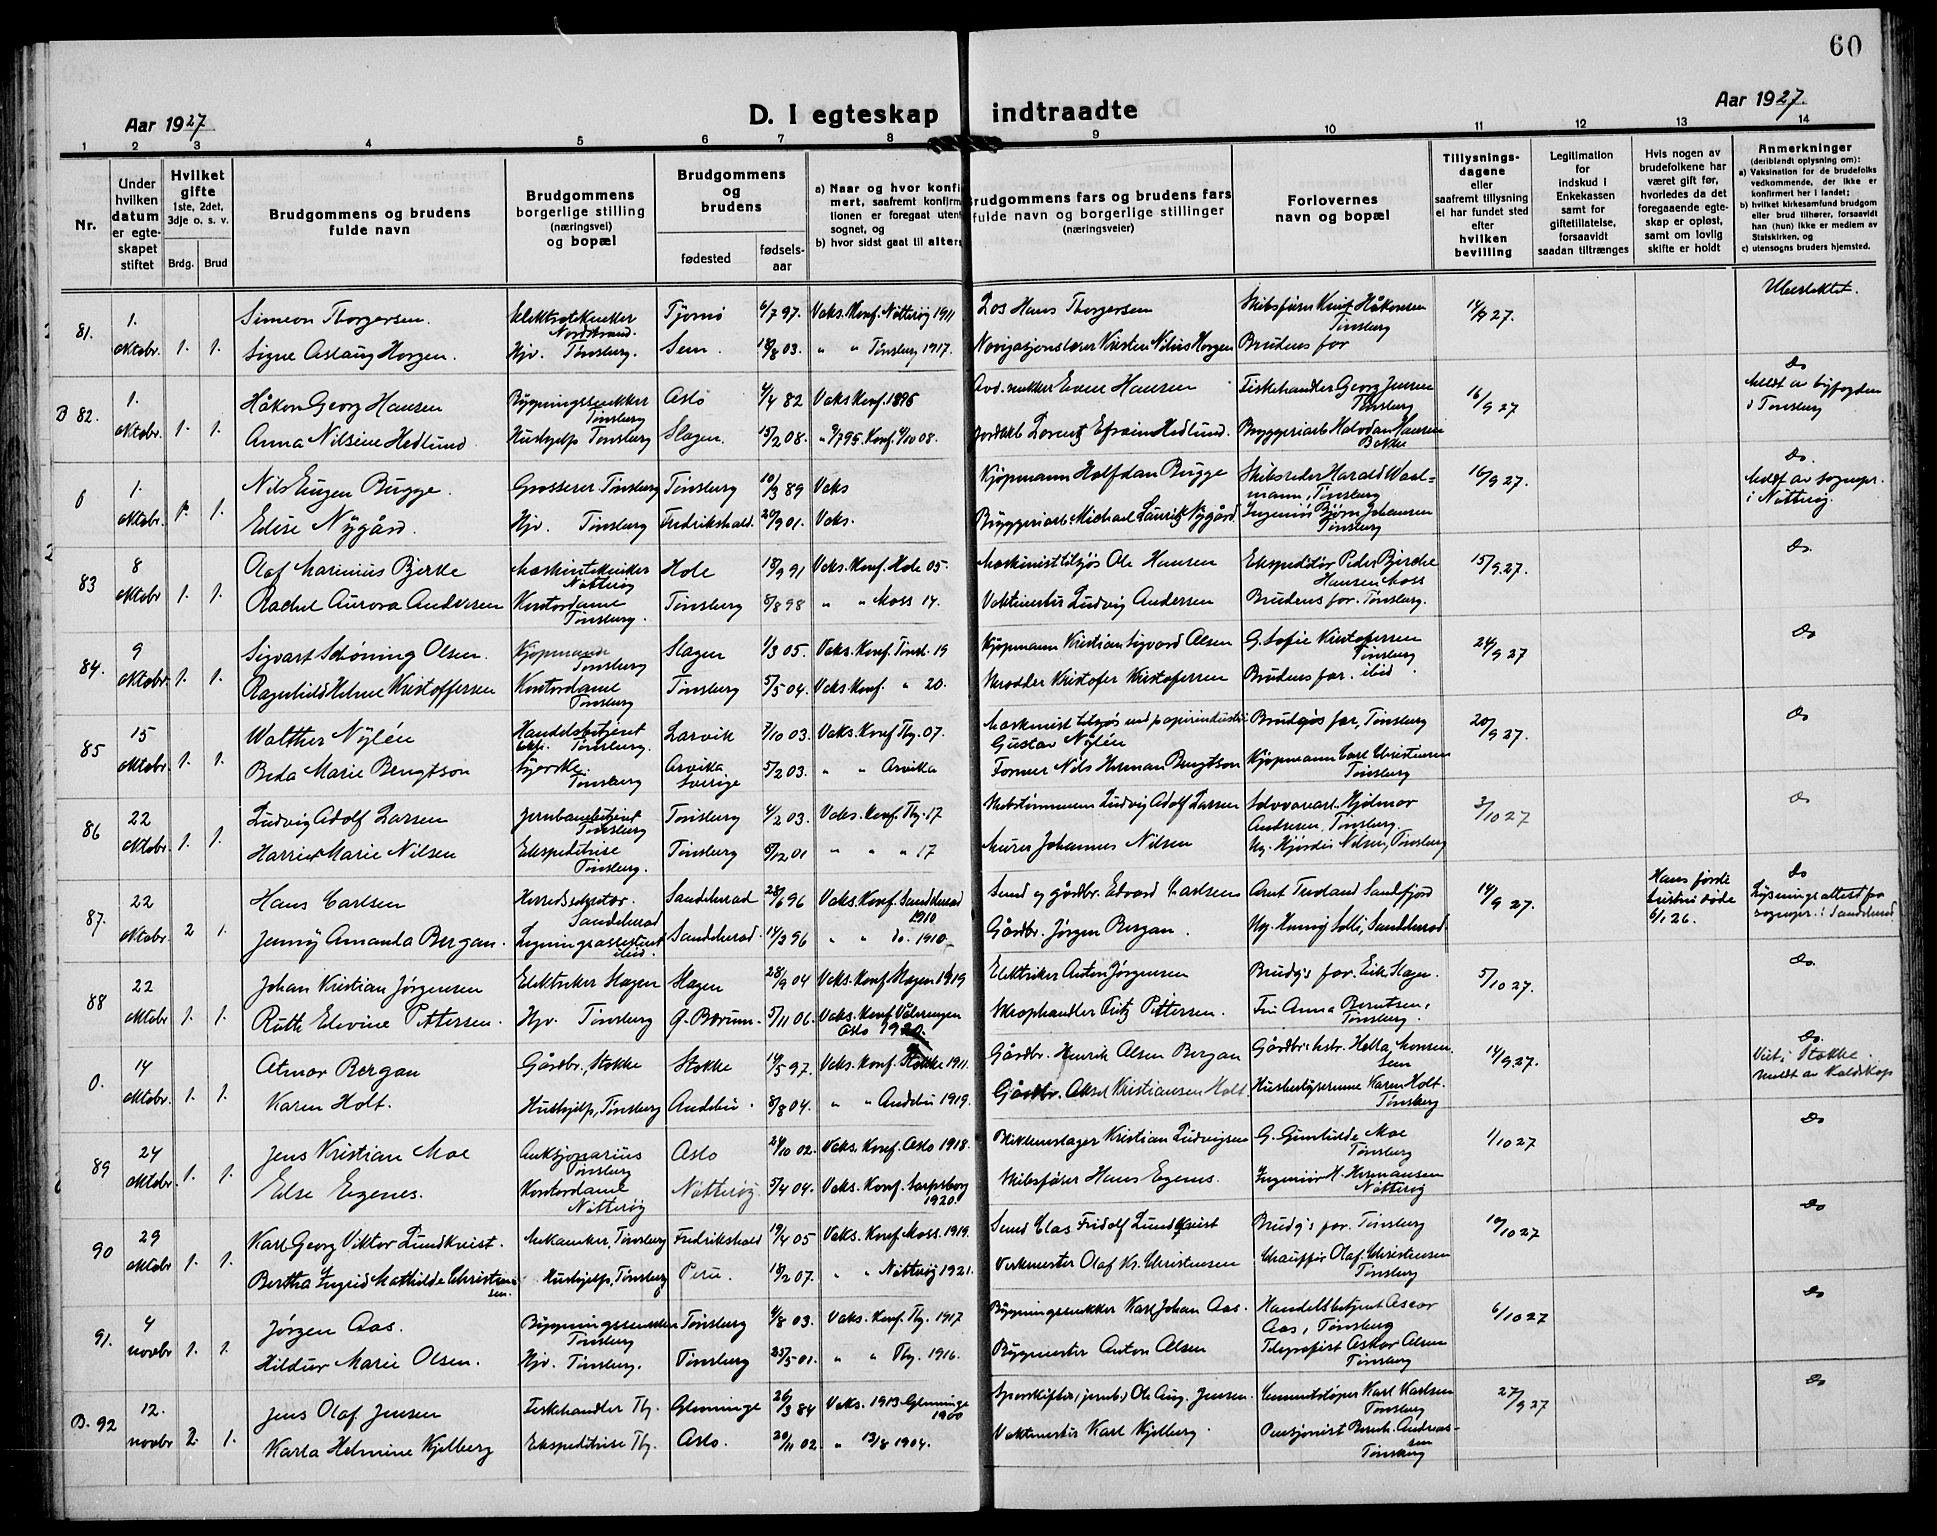 60
Aar 1927
D. I egteskap indtraadte
Aar 1927.
1 2 3 4 5 6 7 8 9 10 11 12 13 14
Nr.
Under hvilken datum er egteskapet stiftet
Hvilket gifte 1ste, 2det, 3dje o. s. v.
Brdg. Brud
Brudgommens og brudens fulde navn
Brudgommens borgerlige stilling (næringsvei) og bopæl
Brudgommens og brudens
fødested
fødselsaar
a) Naar og hvor konfi
mert, saafremt konfirm
tionen er foregaat uten
sognet, og
b) hvor sidst gaat til alter
Brudgommens fars og brudens fars
fulde navn og borgerlige stillinger
(næringsveier)
Forlovernes
navn og bopæl
Tillysnings-
dagene
eller
saafremt tillysning
ei har fundet sted
efter
hvilken
bevilling
Legitimation
for
indskud i
Enkekassen
samt for
giftetillatelse,
forsaavidt
saadan tiltrænges
Hvis nogen av
brudefolkene har
været gift før,
hvorledes da det
foregaaende egte-
skap er opløst,
samt om lovlig
skifte er holdt
Anmerkninger
(deriblandt oplysning om):
a) Vaksination for de brudefolks
vedkommende, der ikke er
konfirmert her i landet;
b) hvilket kirkesamfund brudgom
eller brud tilhører, forsaavidt
han (hun) ikke er medlem av
Statskirken, og
c) utensogns bruders hjemsted.
81. 1. oktobr. 1. 1.
Simeon Thorgersen. Elektrotekniker Nordstrand. Tjømø 6/7 97. Vaks. Konf. Nøtterøy 1911 Los Hans Thorgersen Skibsfører Knut Håkonsen Tønsberg 14/9 27. Ubeslektet.
Signe Aslaug Horgen. Hjv. Tønsberg. Sem. 18/8 03. " " Tønsberg 1917. Navigasjonslærer Kristen Nilius Horgen Brudens far
B 82. 1. oktobr. 1. 1.
Håkon Georg Hansen Bygningssnekker Tønsberg Oslo 4/4 82 Vaks Konf. 1896 Avd. snekker Even Hansen Fiskehandler Georg Jensen Tønsberg 16/9 27 Do Meldt av byfogden i Tønsberg
Anna Nilsine Hedlund. Hushjelp Tønsberg Slagen. 15/2 08. Jordarb Lorentz Efraim Hedlund. Bryggeriarb Halvdan Hansen Bekke
0 1. oktobr. 1. 1.
Nils Eugen Bugge. Grosserer. Tønsberg Tønsberg 10/3 89 Vaks Kjøpmann Halfdan Bugge Skibsreder Harald Waal=mann, Tønsberg 16/9 27. Do. Meldt av sognepr. i Nøtterøy.
Elise Nygård. Hjv. Tønsberg Fredrikshald. 20/9 01. Vaks. Bryggeriarb. Michael Lauritz Nygård Ingeniør Bjørn Johansen Tønsberg
83 8 oktobr 1. 1.
Olaf Marinius Bjerke Maskintekniker Nøtterøy Hole 18/9 91 Vaks. Konf. Hole 05. Maskinist tilsjøs Ole Hansen Ekspeditør Peder Bjerke Hansen Moss 15/9 27. Do.
Rachel Aurora Andersen Kontordame Tønsberg. Tønsberg 8/8 98 " " Moss 14. Vaktmester Ludvig Andersen Brudens far. Tønsberg.
84. 9 oktobr. 1. 1.
Sigvart Schøning Olsen. Kjøpmann Tønsberg Slagen 1/3 05. Vaks. Konf. Tønsb. 19 Kjøpmann Kristian Sigvard Olsen G. Sofie Kristofersen Tønsberg 24/9 27 Do
Ragnhild Helene Kristoffersen Kontordame Tønsberg Tønsberg 5/5 04. Vaks Konf. " 20. Skredder Kristofer Kristofersen Brudens far. ibid.
85 15 oktobr. 1. 1.
Walther Nylén Handelsbetjent Tønsberg. Larvik 7/10 03. Vaks. Konf Tbg. 07. Maskinist tilsjøs ved papirindustri Gustav Nylén Brudgs far, Tønsberg 20/9 27. Do
Beda Marie Bengtson Syerske. Tønsberg Arvika Sverige 5/2 03. " " Arvika Former Nils Herman Bengtson Kjøpmann Carl Christensen Tønsberg
86 22 oktobr. 1. 1.
Ludvig Adolf Larsen Jernbanebetjent Tønsberg Tønsberg 4/2 03. Vaks. Konf. Tbg. 17 Skibstømmerm Ludvig Adolf Larsen Hjalmar Andresen. Tønsberg 3/10 27 Do
Harriet Marie Nilsen Ekspeditrise Tønsberg. Tønsberg 6/12 01 " " " 17 Murer Johannes Nilsen Ug. Hjørdis Nilsen, Tønsberg
87. 22 oktobr. 2 1.
Hans Carlsen Herredskasserer. Sandeherad Sandeherad 28/6 96 Vaks. Konf. Sandeherad 1910 Smed og gårdbr. Edvard Carlsen Arnt Sandfjord 14/9 27. Hans første hustru døde 6/1 26. Do Lysningsattest fra sognepr. i Sandeherad
Jenny Amanda Bergan. Ligningsassistent ibid. Sandeherad. 14/3 96 " " do. 1910 Gårdbr. Jørgen Bergan. Ug. Solli, Sandeherad
88 22 oktobr 1. 1.
Johan Kristian Jørgensen Elektriker Slagen Slagen 28/9 04 Vaks. Konf. Slagen 1919 Elektriker Anton Jørgensen Brudg's far. Eik Slagen. 5/10 27. Do.
Ruth Elevine Pettersen. Hjv. Tønsberg Ø. Bærum. 5/11 06. Vaks. Konf. Vålerengen Oslo 1920. Skraphandler Fritz Pettersen. Fru Anna Berntsen, Tønsberg.
0. 14 oktobr. 1. 1.
Otmar Bergan Gårdbr., Stokke Stokke 14/5 97. Vaks. Konf. Stokke 1911. Gårdbr. Henrik Olsen Bergan Gårdbr.hstr. Hella Monsen Sem 14/9 27. Do. Viet i Stokke. Meldt av
Karen Holt. Hushjelp, Tønsberg Andebu. 8/8 04. " " Andebu 1919. Gårdbr. Aksel Kristiansen Holt. Husbestyrerinne Karen Holt. Tønsberg
89 24 oktobr. 1. 1.
Jens Kristian Moe Auksjonarius Tønsberg Oslo 24/10 02. Vaks. Konf. Oslo 1918. Blikkenslager Kristian Ludvigsen G. Gunhilde Moe Tønsberg 1/10 27 Do
Else Egenes. Kontordame Nøtterøy Nøtterøy 5/4 04. Vaks. Konf. Sarpsborg 1920. Skibsfører Hans Egenes. Ingeniør H. Hermansen Nøtterøy
90 29 oktobr 1. 1.
Karl Georg Viktor Lundkvist. Mekaniker, Tønsberg Fredrikshald 19/4 05 Vaks. Konf. Moss. 1919. Smed Clas Fridolf Lundkvist Brudg's far. Tønsberg 10/10 27 Do
Bertha Ingrid Mathilde Christensen. Hushjelp, Tønsberg Peru. 18/2 07. " " Nøtterøy 1921. Verkmester Olaf Kr. Christensen Chauffør Olaf Christensen Tønsberg
91. 4 novbr 1. 1.
Jørgen Aas. Bygningssnekker Tønsberg Tønsberg 4/8 03. Vaks. Konf. Tbg. 1917 Bygningssnekker Karl Johan Aas. Handelsbetjent Oscar Aas, Tønsberg 6/10 27 Do
Hildur Marie Olsen. Hjv. Tønsberg. Tønsberg 25/5 01. " " Tbg. 1916. Bygmester Anton Olsen Telegrafist Oskar Olsen Tønsberg
B. 92 12. novbr 2 1.
Jens Olaf Jensen Fiskehandler Tbg. Glemminge 26/3 84 Vaks. 1913 Glemminge 1900 Sporskifter (jernb.) Ole Aug. Jensen. Cementstøper Karl Karlsen Tønsberg 27/9 27 Do
Karla Helmine Kjelberg Ekspeditrise Tbg. Oslo. 20/11 02 " 13/8 1904. Vaktmester Karl Kjelberg. Pensjonist Bernh. Andreassen Tønsberg